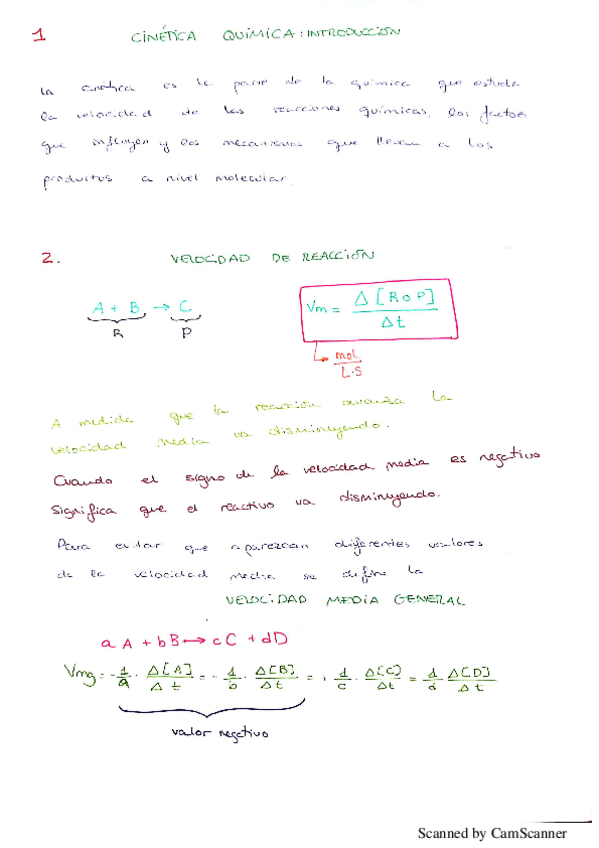 1 CINÉTICA QUÍMICA: INTRODUCCIÓN
La cinética es la parte de la química que estudia
la velocidad de las reacciones químicas, los factores
que influyen y los mecanismos que llevan a los
productos a nivel molecular.
2. VELOCIDAD DE REACCIÓN
A + B → C
R P
Vm = Δ [R o P] / Δt
mol / L·S
A medida que la reacción avanza la
velocidad media va disminuyendo.
Cuando el signo de la velocidad media es negativo
significa que el reactivo va disminuyendo.
Para evitar que aparezcan diferentes valores
de la velocidad media se define la
VELOCIDAD MEDIA GENERAL
a A + b B → c C + d D
Vmg = - 1/a · Δ[A]/Δt = - 1/b · Δ[B]/Δt = + 1/c · Δ[C]/Δt = 1/d Δ[D]/Δt
valor negativo
Scanned by CamScanner